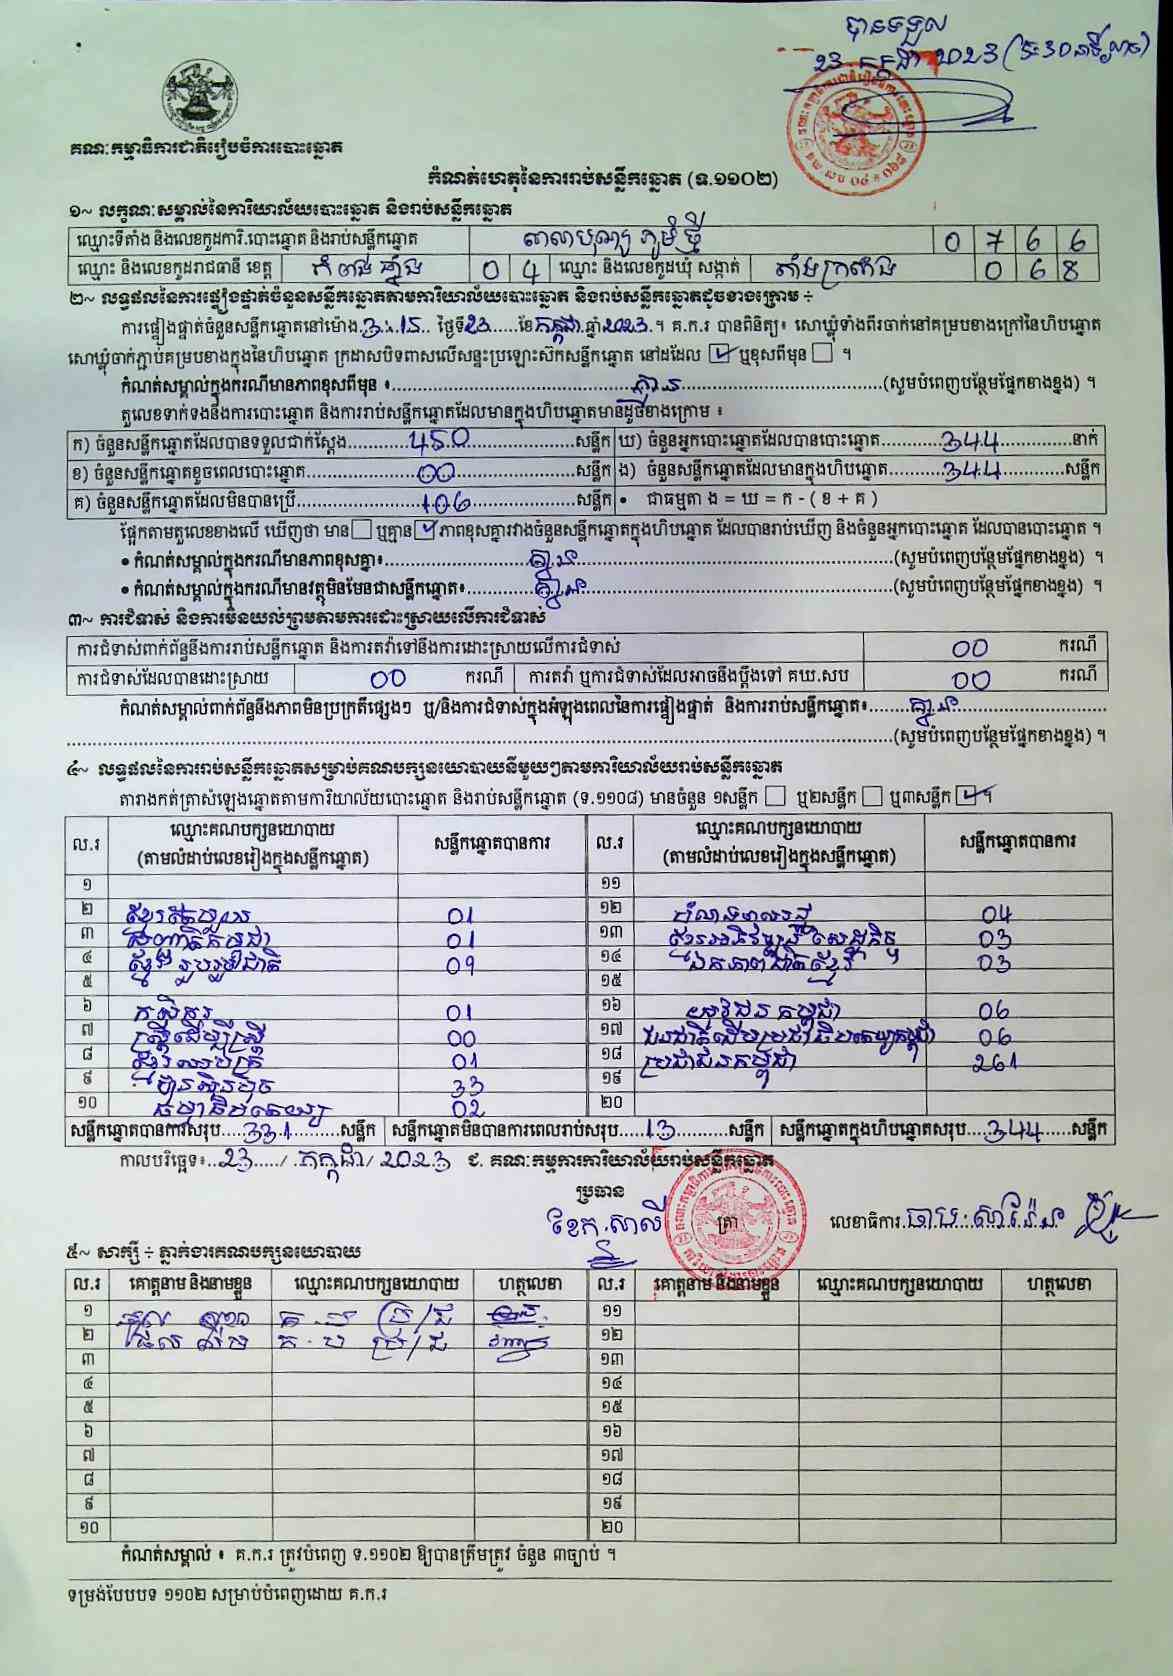 បានទទួល
23 កក្កដា 2023
គណៈកម្មាធិការជាតិរៀបចំការបោះឆ្នោត
កំណត់ហេតុនៃការរាប់សន្លឹកឆ្នោត (ទ.១១០២)
១~ លក្ខណៈសម្គាល់នៃការិយាល័យបោះឆ្នោត និងរាប់សន្លឹកឆ្នោត
ឈ្មោះទីតាំង និងលេខកូដការិ.បោះឆ្នោត និងរាប់សន្លឹកឆ្នោត សាលាបុណ្យ ភូមិថ្មី 0 7 6 6
ឈ្មោះ និងលេខកូដរាជធានី ខេត្ត កំពង់ឆ្នាំង 0 4 ឈ្មោះ និងលេខកូដឃុំ សង្កាត់ តាំងក្រសាំង 0 6 8
២~ លទ្ធផលនៃការផ្ទៀងផ្ទាត់ចំនួនសន្លឹកឆ្នោតតាមការិយាល័យបោះឆ្នោត និងរាប់សន្លឹកឆ្នោតដូចខាងក្រោម ÷
ការផ្ទៀងផ្ទាត់ចំនួនសន្លឹកឆ្នោតនៅម៉ោង.3:15.. ថ្ងៃទី23......ខែកក្កដា.ឆ្នាំ2023.។ គ.ក.រ បានពិនិត្យ៖ សោឃ្លុំទាំងពីរចាក់នៅគម្របខាងក្រៅនៃហិបឆ្នោត
សោឃ្លុំចាក់ភ្ជាប់គម្របខាងក្នុងនៃហិបឆ្នោត ក្រដាសបិទពាសលើសន្ទះប្រឡោះស៊កសន្លឹកឆ្នោត នៅដដែល ☑ ឬខុសពីមុន ☐ ។
កំណត់សម្គាល់ក្នុងករណីមានភាពខុសពីមុន ៖........គ្មាន........(សូមបំពេញបន្ថែមផ្នែកខាងខ្នង) ។
តួលេខទាក់ទងនឹងការបោះឆ្នោត និងការរាប់សន្លឹកឆ្នោតដែលមានក្នុងហិបឆ្នោតមានដូចខាងក្រោម ៖
ក) ចំនួនសន្លឹកឆ្នោតដែលបានទទួលជាក់ស្តែង........450........សន្លឹក ឃ) ចំនួនអ្នកបោះឆ្នោតដែលបានបោះឆ្នោត........344........នាក់
ខ) ចំនួនសន្លឹកឆ្នោតខូចពេលបោះឆ្នោត........00........សន្លឹក ង) ចំនួនសន្លឹកឆ្នោតដែលមានក្នុងហិបឆ្នោត........344........សន្លឹក
គ) ចំនួនសន្លឹកឆ្នោតដែលមិនបានប្រើ........106........សន្លឹក • ជាធម្មតា ង = ឃ = ក - ( ខ + គ )
ផ្អែកតាមតួលេខខាងលើ ឃើញថា មាន☐ ឬគ្មាន☑ ភាពខុសគ្នារវាងចំនួនសន្លឹកឆ្នោតក្នុងហិបឆ្នោត ដែលបានរាប់ឃើញ និងចំនួនអ្នកបោះឆ្នោត ដែលបានបោះឆ្នោត ។
• កំណត់សម្គាល់ក្នុងករណីមានភាពខុសគ្នា៖........គ្មាន........(សូមបំពេញបន្ថែមផ្នែកខាងខ្នង) ។
• កំណត់សម្គាល់ក្នុងករណីមានវត្ថុមិនមែនជាសន្លឹកឆ្នោត៖........គ្មាន........(សូមបំពេញបន្ថែមផ្នែកខាងខ្នង) ។
៣~ ការជំទាស់ និងការមិនយល់ព្រមតាមការដោះស្រាយលើការជំទាស់
ការជំទាស់ពាក់ព័ន្ធនឹងការរាប់សន្លឹកឆ្នោត និងការតវ៉ាទៅនឹងការដោះស្រាយលើការជំទាស់ 00 ករណី
ការជំទាស់ដែលបានដោះស្រាយ 00 ករណី ការតវ៉ា ឬការជំទាស់ដែលអាចនឹងប្តឹងទៅ គឃ.សប 00 ករណី
កំណត់សម្គាល់ពាក់ព័ន្ធនឹងភាពមិនប្រក្រតីផ្សេងៗ ឬ/និងការជំទាស់ក្នុងអំឡុងពេលនៃការផ្ទៀងផ្ទាត់ និងការរាប់សន្លឹកឆ្នោត៖........គ្មាន........
........(សូមបំពេញបន្ថែមផ្នែកខាងខ្នង) ។
៤~ លទ្ធផលនៃការរាប់សន្លឹកឆ្នោតសម្រាប់គណបក្សនយោបាយនីមួយៗតាមការិយាល័យរាប់សន្លឹកឆ្នោត
តារាងកត់ត្រាសំឡេងឆ្នោតតាមការិយាល័យបោះឆ្នោត និងរាប់សន្លឹកឆ្នោត (ទ.១១០៨) មានចំនួន ១សន្លឹក ☐ ឬ២សន្លឹក ☐ ឬ៣សន្លឹក ☑ ។
ល.រ ឈ្មោះគណបក្សនយោបាយ (តាមលំដាប់លេខរៀងក្នុងសន្លឹកឆ្នោត) សន្លឹកឆ្នោតបានការ ល.រ ឈ្មោះគណបក្សនយោបាយ (តាមលំដាប់លេខរៀងក្នុងសន្លឹកឆ្នោត) សន្លឹកឆ្នោតបានការ
១ ១១
២ ខ្មែរឈប់ក្រ 01 ១២ 04
៣ សញ្ជាតិកម្ពុជា 01 ១៣ ខ្មែរអភិវឌ្ឍន៍សេដ្ឋកិច្ច 03
៤ ខ្មែររួបរួមជាតិ 09 ១៤ ឯកភាពជាតិខ្មែរ 03
៥ ១៥
៦ កសិករ 01 ១៦ យុវជនកម្ពុជា 06
៧ ស្ត្រីដើម្បីស្ត្រី 00 ១៧ ជនជាតិដើមប្រជាធិបតេយ្យកម្ពុជា 06
៨ 01 ១៨ ប្រជាជនកម្ពុជា 261
៩ ហ៊្វុនស៊ិនប៉ិច 33 ១៩
១០ ធម្មាធិបតេយ្យ 02 ២០
សន្លឹកឆ្នោតបានការសរុប....331........សន្លឹក សន្លឹកឆ្នោតមិនបានការពេលរាប់សរុប....13........សន្លឹក សន្លឹកឆ្នោតក្នុងហិបឆ្នោតសរុប...344.....សន្លឹក
កាលបរិច្ឆេទ៖..23...../.កក្កដា/ 2023 ជ. គណៈកម្មការការិយាល័យរាប់សន្លឹកឆ្នោត
ប្រធាន
ត្រា លេខាធិការ
៥~ សាក្សី ÷ ភ្នាក់ងារគណបក្សនយោបាយ
ល.រ គោត្តនាម និងនាមខ្លួន ឈ្មោះគណបក្សនយោបាយ ហត្ថលេខា ល.រ គោត្តនាម និងនាមខ្លួន ឈ្មោះគណបក្សនយោបាយ ហត្ថលេខា
១ គ.ប ប្រ/ជ ១១
២ គ.ប ប្រ/ជ ១២
៣ ១៣
៤ ១៤
៥ ១៥
៦ ១៦
៧ ១៧
៨ ១៨
៩ ១៩
១០ ២០
កំណត់សម្គាល់ ៖ គ.ក.រ ត្រូវបំពេញ ទ.១១០២ ឱ្យបានត្រឹមត្រូវ ចំនួន ៣ច្បាប់ ។
ទម្រង់បែបបទ ១១០២ សម្រាប់បំពេញដោយ គ.ក.រ